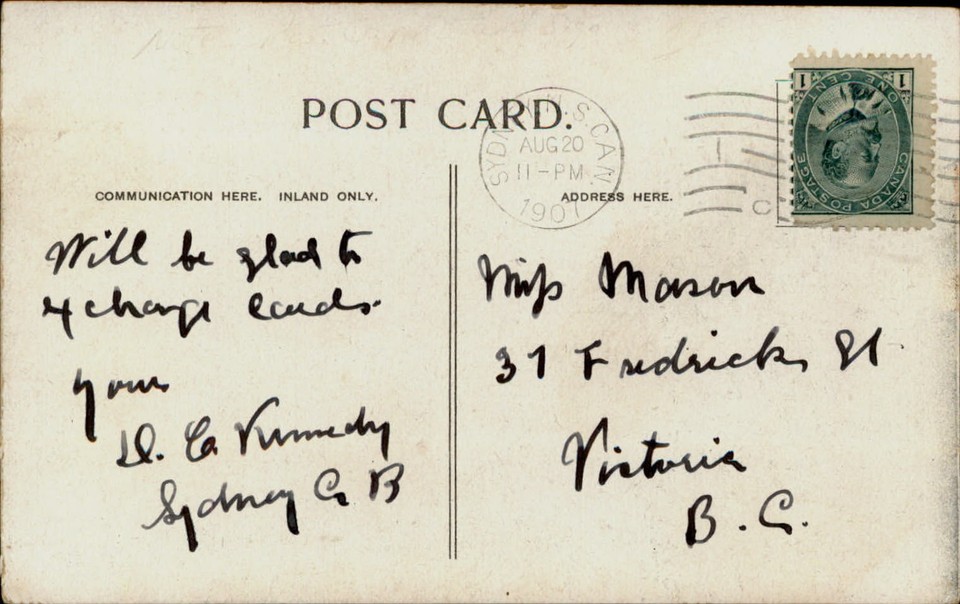 POST CARD.
SYDNEY, N.S. CAN.
AUG 20
11-PM
1907
C
1 1
ONE CENT
CANADA POSTAGE
COMMUNICATION HERE. INLAND ONLY.
ADDRESS HERE.
Will be glad to
exchange cards.
yours
D. C. Kennedy
Sydney C B
Miss Mason
37 Fredrick St
Victoria
B. C.